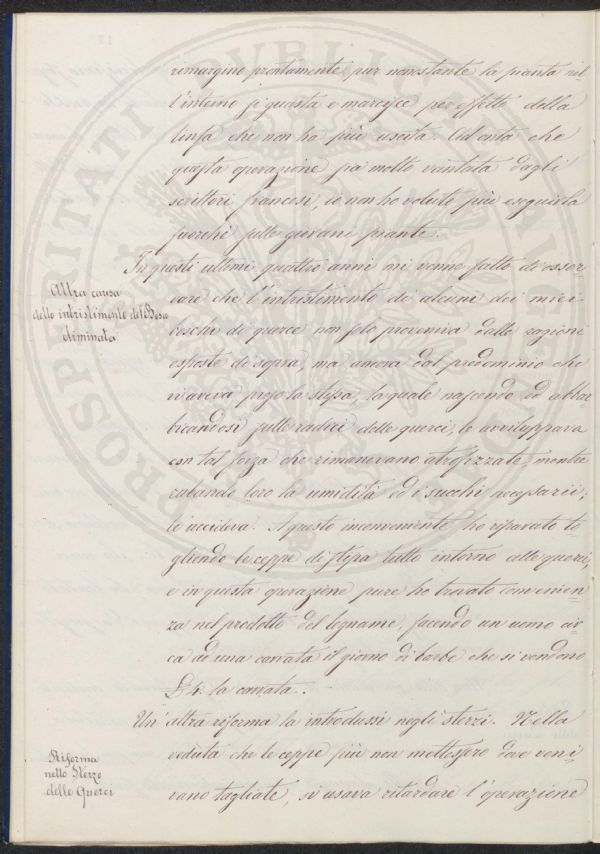 rimargino prontamente, pur nonostante la pianta nel
l'interno si guasta e marcisce per effetto della
linfa che non ha più uscita. Ad onta che
questa operazione sia molto vantata dagli
scrittori francesi, io non ho voluto più eseguirla
fuorché sulle giovani piante.
In questi ultimi quattro anni mi venne fatto di osser
vare che l'intristimento di alcuni dei miei
boschi di querce non solo proveniva dalle ragioni
esposte di sopra, ma ancora dal predominio che
v'aveva preso la stipa, la quale nascendo ed abbar
bicandosi sulle radici delle querci, le avviluppava
con tal forza che rimanevano atrofizzate, mentre
rubando loro la umidità ed i succhi necessarii,
le uccideva. A questo inconveniente ho riparato to
gliendo le ceppe di stipa tutto intorno alle querci,
e in questa operazione pure ho trovato convenien
za nel prodotto del legname, facendo un uomo cir
ca ad una carrata il giorno di barbe che si vendono
£ 4. la carrata.
Un'altra riforma la introdussi negli sterzi. Nella
veduta che le ceppe più non mettessero dove veni
vano tagliate, si usava ritardare l'operazione
Altra causa
dello intristimento del Bosco
eliminata
Riforma
nello Sterzo
delle Querci
PROSPERITATI PVBLICAE AVGENDAE